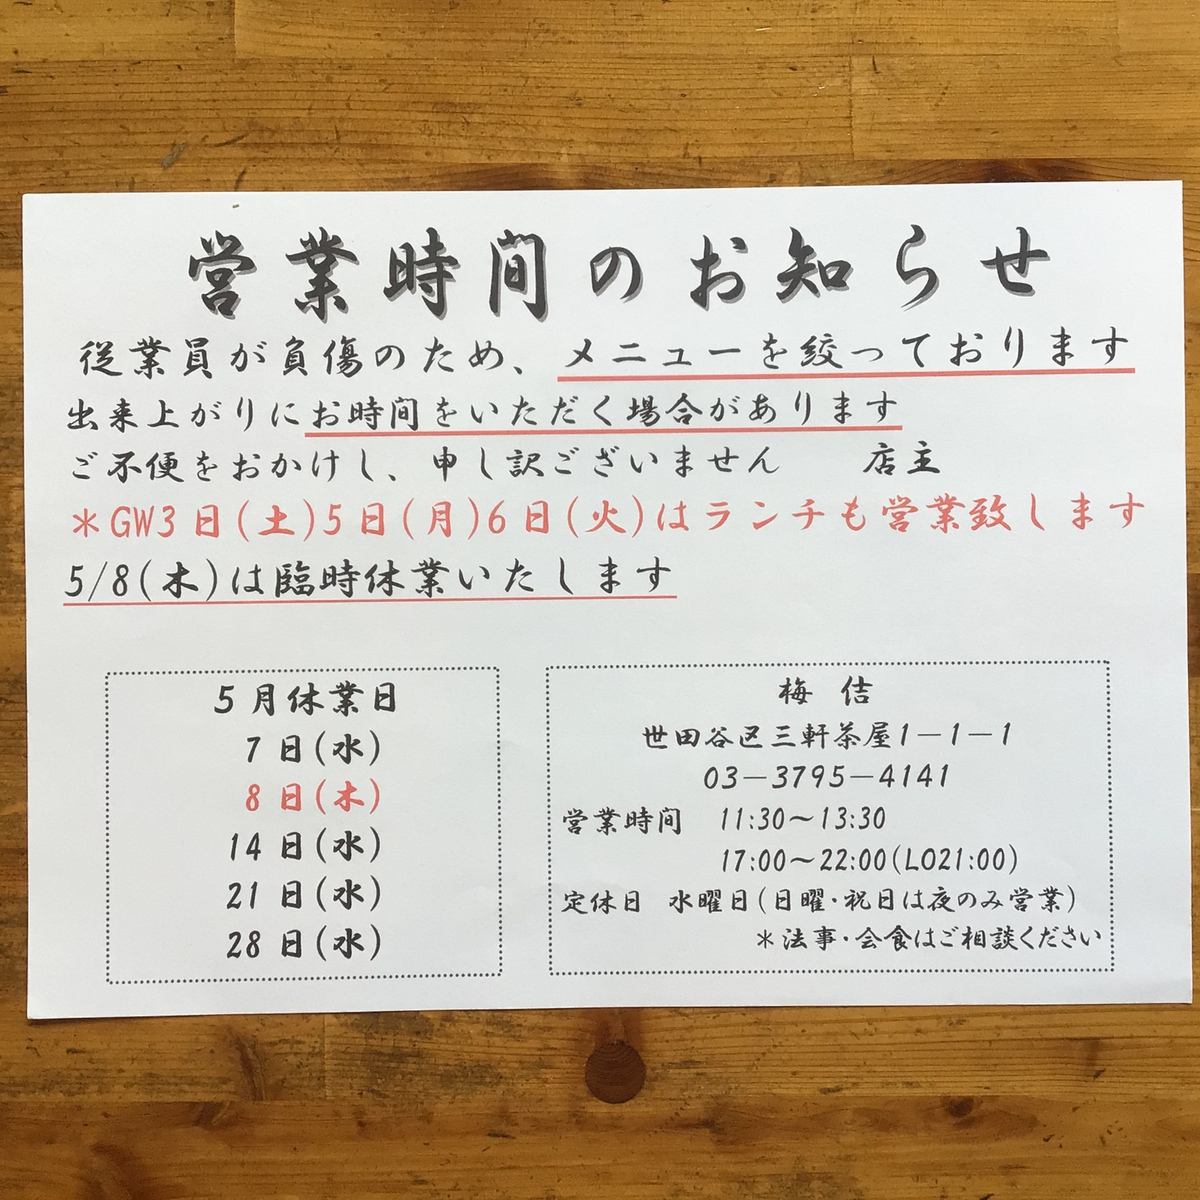 営業時間のお知らせ
従業員が負傷のため、メニューを絞っております
出来上がりにお時間をいただく場合があります
ご不便をおかけし、申し訳ございません　店主
＊GW3日(土)5日(月)6日(火)はランチも営業致します
5/8(木)は臨時休業いたします
5月休業日
7日(水)
8日(木)
14日(水)
21日(水)
28日(水)
梅佶
世田谷区三軒茶屋1－1－1
03－3795－4141
営業時間　11:30～13:30
17:00～22:00(LO21:00)
定休日　水曜日(日曜・祝日は夜のみ営業)
＊法事・会食はご相談ください